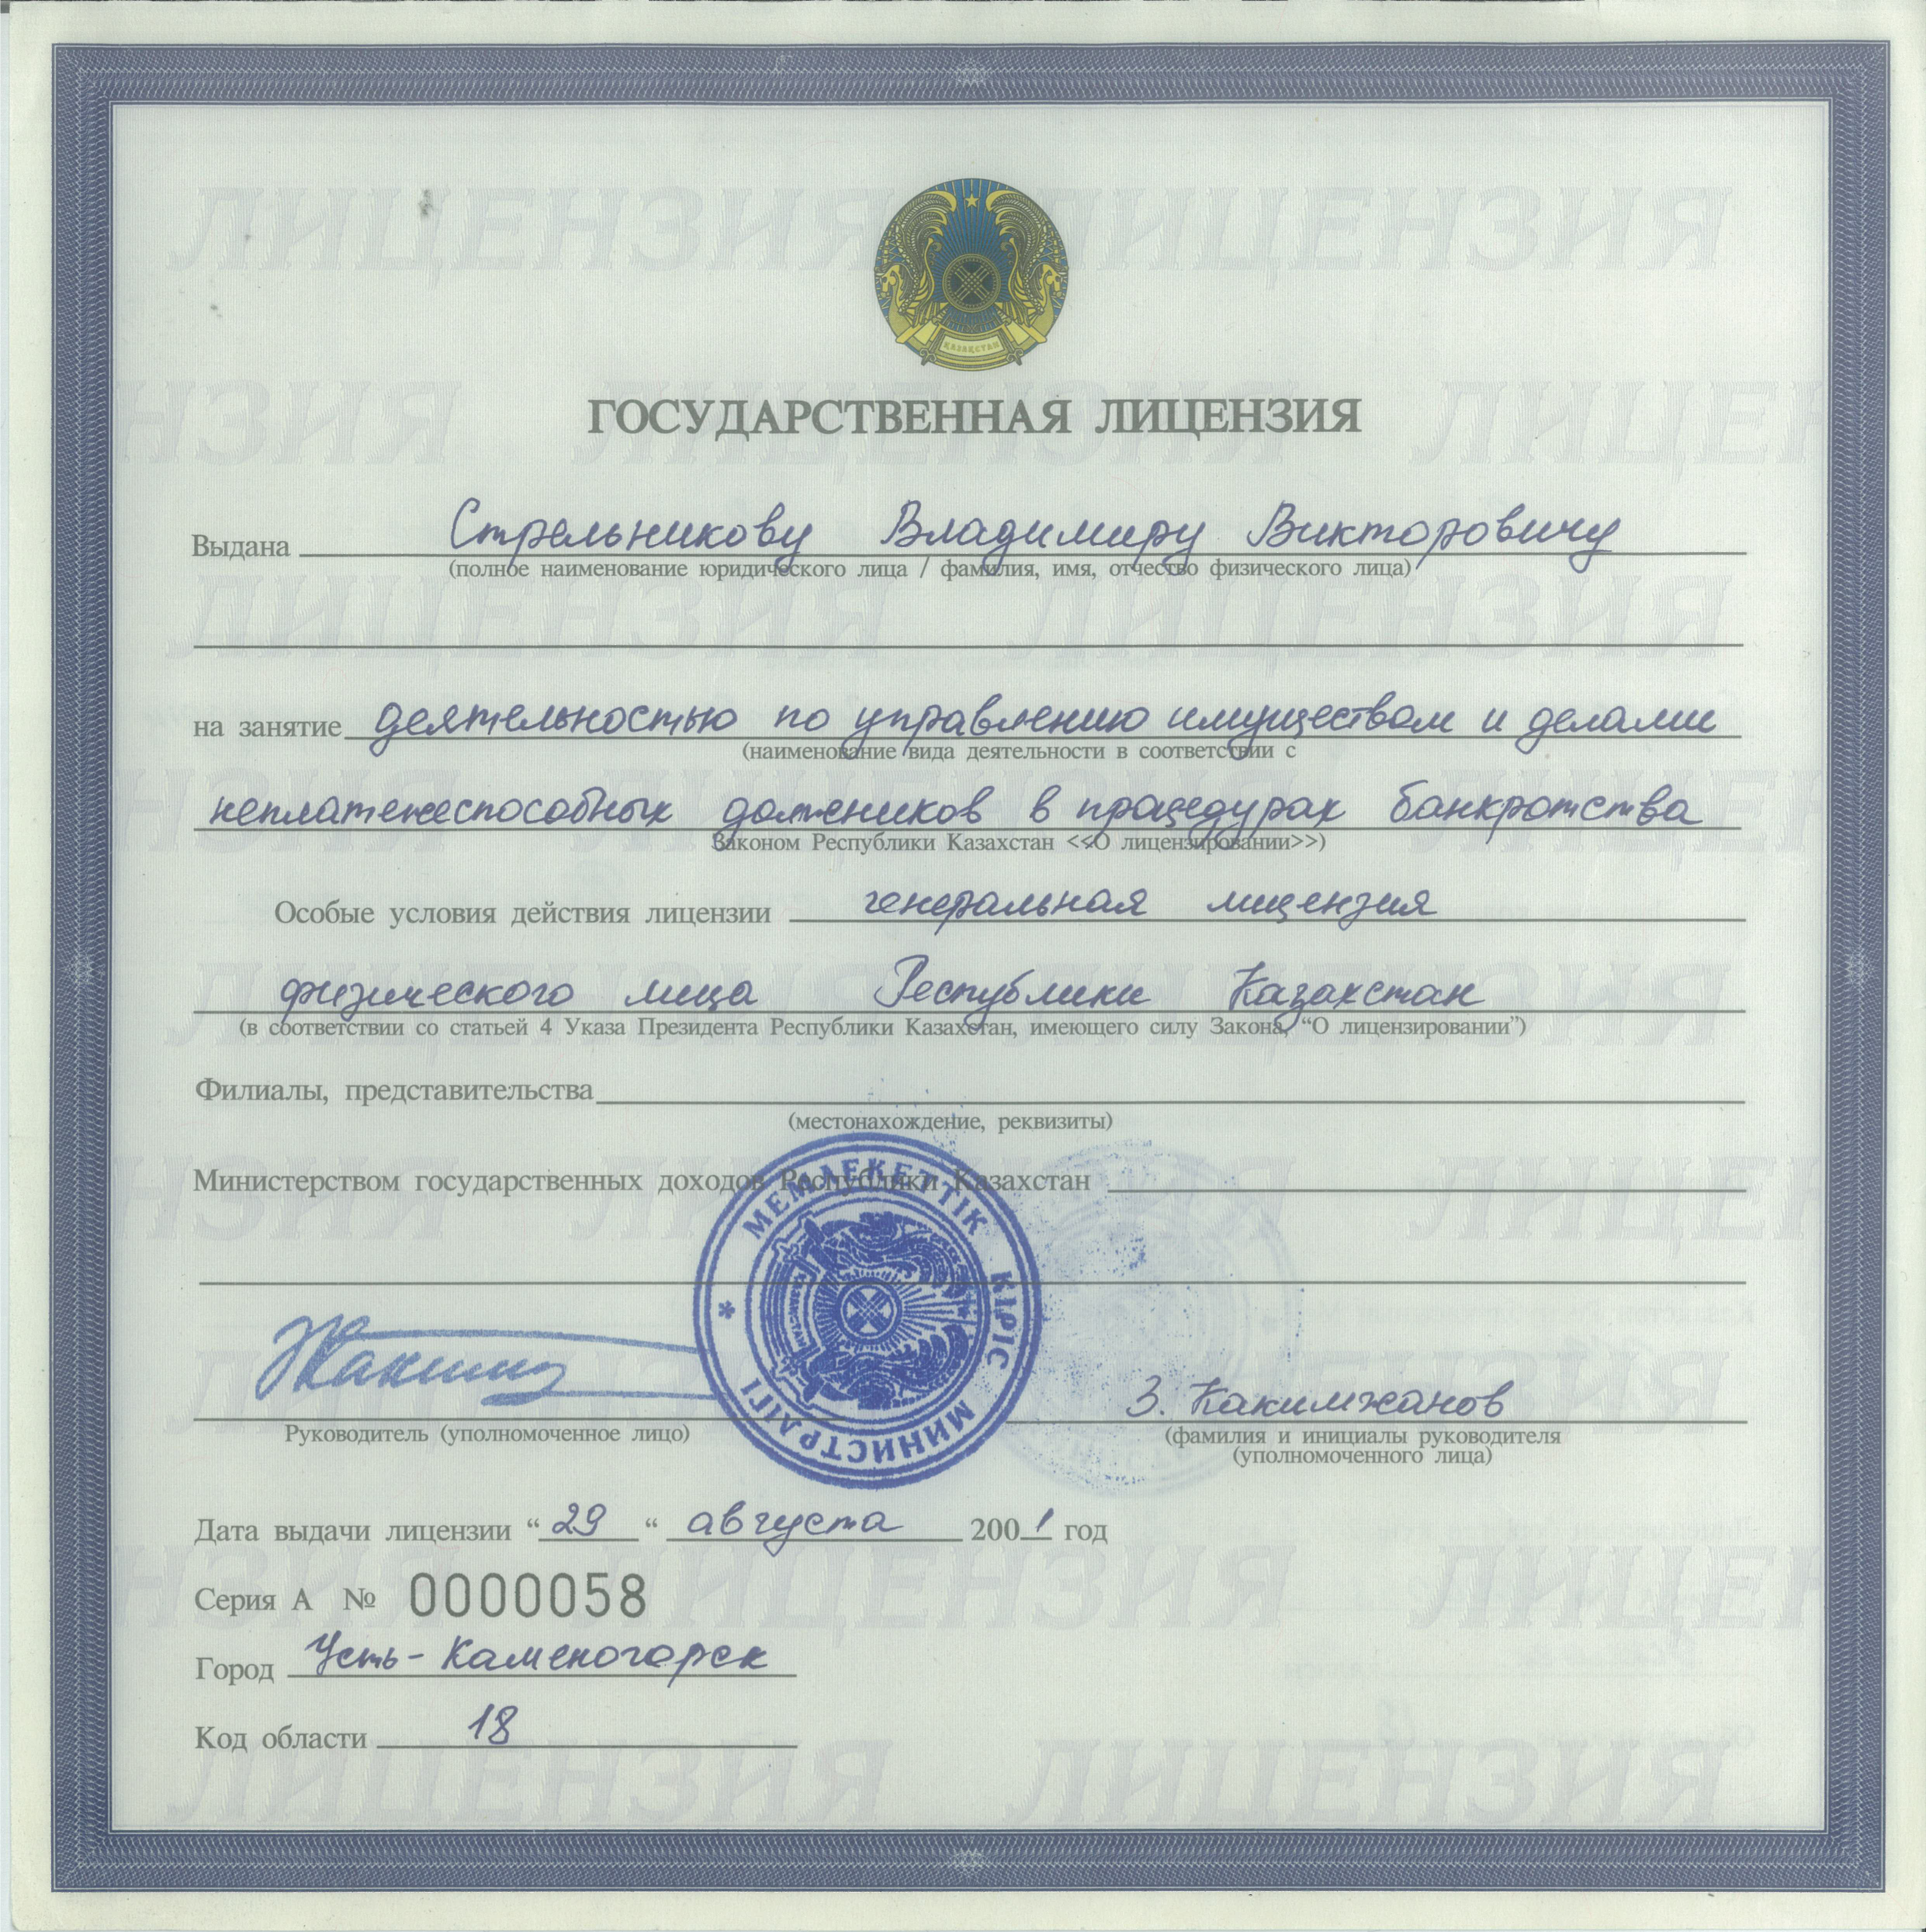 ҚАЗАҚСТАН
ГОСУДАРСТВЕННАЯ ЛИЦЕНЗИЯ
Выдана Стрельникову Владимиру Викторовичу
(полное наименование юридического лица / фамилия, имя, отчество физического лица)
на занятие деятельностью по управлению имуществом и делами
(наименование вида деятельности в соответствии с
неплатежеспособных должников в процедурах банкротства
Законом Республики Казахстан <<О лицензировании>>)
Особые условия действия лицензии генеральная лицензия
физического лица Республики Казахстан
(в соответствии со статьей 4 Указа Президента Республики Казахстан, имеющего силу Закона, “О лицензировании”)
Филиалы, представительства
(местонахождение, реквизиты)
Министерством государственных доходов Республики Казахстан
МЕМЛЕКЕТТІК КІРІС МИНИСТРЛІГІ
З. Какимжанов
Руководитель (уполномоченное лицо)
(фамилия и инициалы руководителя
(уполномоченного лица)
Дата выдачи лицензии “ 29 “ августа 2001 год
Серия А № 0000058
Город Усть-Каменогорск
Код области 18